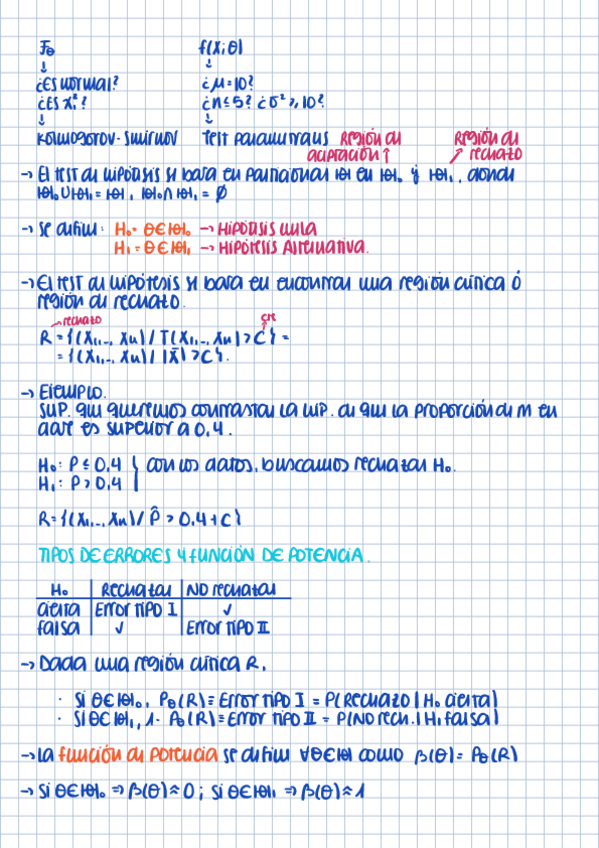 Fθ f(x;θ)
↓ ↓
¿Es normal? ¿μ=10?
¿Es χ²? ¿n≤5? ¿σ²≥10?
↓ ↓
Kolmogorov-Smirnov Test paramétricos Región de aceptación ↑ Región de rechazo ↗
→ El test de hipótesis se basa en particionar Θ en Θ₀ y Θ₁, donde
Θ₀∪Θ₁=Θ, Θ₀∩Θ₁=∅
→ Se define: H₀: θ∈Θ₀ → Hipótesis nula
H₁ = θ∈Θ₁ → Hipótesis Alternativa.
→ El test de hipótesis se basa en encontrar una región crítica ó
región de rechazo.
rechazo cte
R = {(x₁,..., xn) / T(x₁,..., xn) > C} =
= {(x₁,..., xn) / |x̄| > C}.
→ Ejemplo.
Sup. que queremos contrastar la hip. de que la proporción de M en
dare es superior a 0,4.
H₀: P ≤ 0,4 } con los datos, buscamos rechazar H₀.
H₁: P > 0,4
R = {(x₁,..., xn) / P̂ > 0,4 + C}
TIPOS DE ERRORES Y FUNCIÓN DE POTENCIA.
H₀ | Rechazar | NO rechazar
cierta | Error TIPO I | ✓
falsa | ✓ | Error TIPO II
→ Dada una región crítica R,
· Si θ∈Θ₀, Pθ(R) = Error TIPO I = P(Rechazo | H₀ cierta)
· Si θ∈Θ₁, 1-Pθ(R) = Error TIPO II = P(NO rech. | H₁ falsa)
→ La función de potencia se define ∀θ∈Θ como β(θ) = Pθ(R)
→ Si θ∈Θ₀ ⇒ β(θ)≈0; Si θ∈Θ₁ ⇒ β(θ)≈1